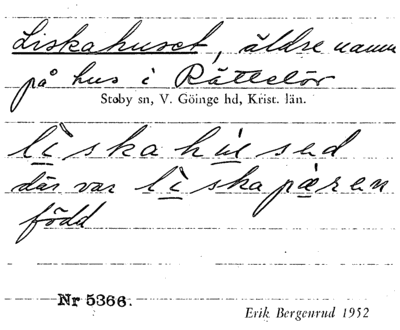 Liskahuset, äldre namn
på hus i Rättelöv
Stoby sn, V. Göinge hd, Krist. län.
lìskahúsed
där var lìskapæren
född
Nr 5366.
Erik Bergenrud 1952